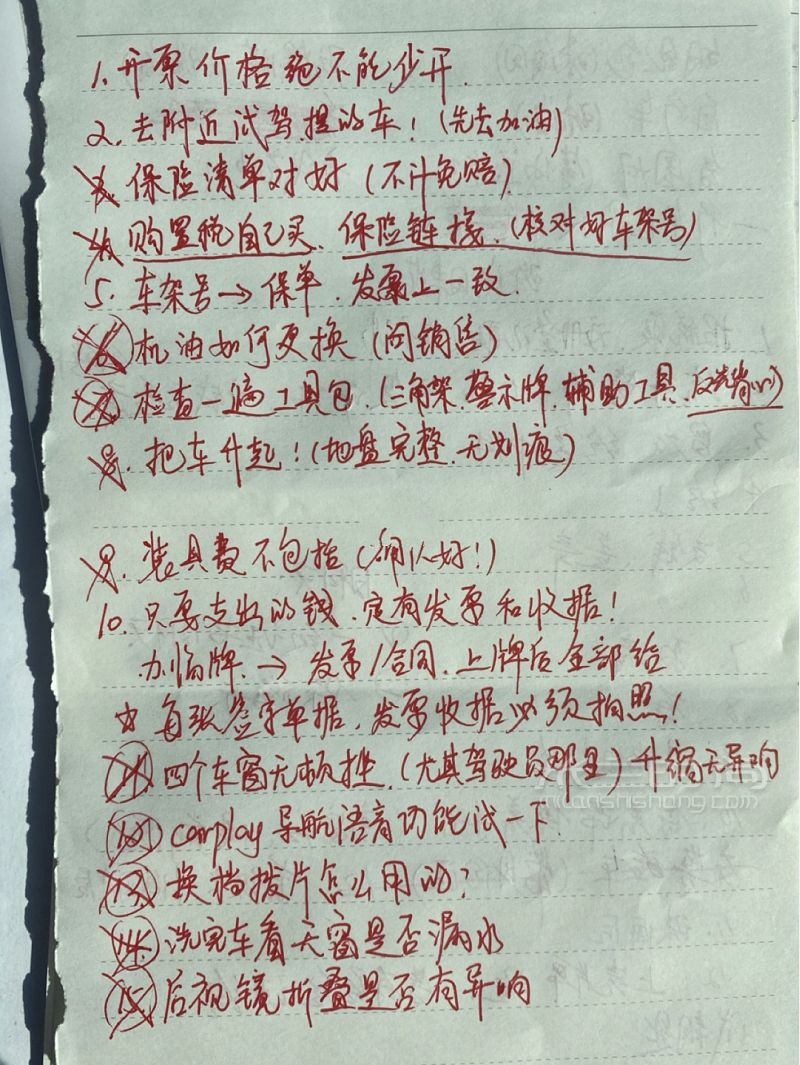 1. 开票价格绝不能少开.
2. 去附近试驾提的车！(先去加油)
3. 保险清单对好 (不计免赔)
4. 购置税自己买、保险链接、(核对好车架号)
5. 车架号→保单、发票上一致.
6 机油如何更换 (问销售)
7. 检查一遍工具包、(三角架、警示牌、辅助工具、反光背心)
8. 把车升起！(地盘完整、无划痕)
9. 装具费不包括 (确认好！)
10. 只要支出的钱、定有发票和收据！
办临牌、→ 发票/合同、上牌后全部给
☆ 每张签字单据、发票收据必须拍照！
11 四个车窗无顿挫、(尤其驾驶员那里) 升缩无异响
12 carplay 导航语音功能试一下
13. 换档拨片怎么用的？
14. 洗完车看天窗是否漏水
15 后视镜折叠是否有异响
nianshishang.com